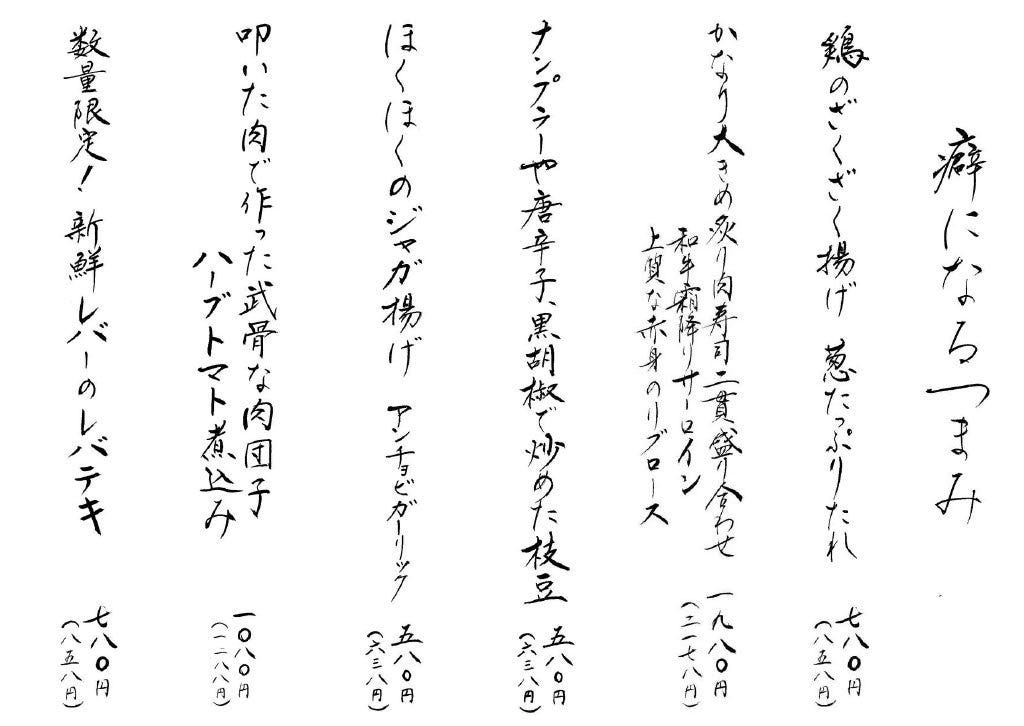 癖になるつまみ
鶏のざくざく揚げ 葱たっぷりたれ
七八〇円
(八五八円)
かなり大きめ炙り肉寿司二貫盛り合わせ
和牛霜降りサーロイン
上質な赤身のリブロース
一九八〇円
(二一七八円)
ナンプラーや唐辛子、黒胡椒で炒めた枝豆
五八〇円
(六三八円)
ほくほくのジャガ揚げ アンチョビガーリック
五八〇円
(六三八円)
叩いた肉で作った武骨な肉団子
ハーブトマト煮込み
一〇八〇円
(一一八八円)
数量限定！新鮮レバーのレバテキ
七八〇円
(八五八円)